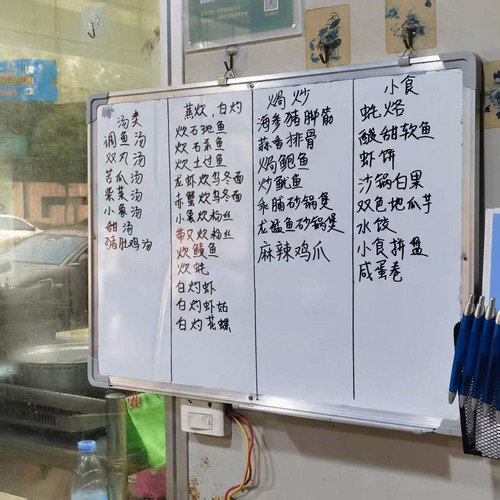 汤类
调鱼汤
双丸汤
苦瓜汤
紫菜汤
小象汤
甜汤
猪肚鸡汤
蒸炊，白灼
炊石斑鱼
炊石乔鱼
炊土过鱼
龙虾炊乌冬面
赤蟹炊乌冬面
小象炊粉丝
带又炊粉丝
炊鳗鱼
炊蚝
白灼虾
白灼虾姑
白灼花螺
焗炒
海参猪脚筋
蒜香排骨
焗鲍鱼
炒鱿鱼
乳脯砂锅煲
龙趸鱼砂锅煲
麻辣鸡爪
小食
蚝烙
酸甜软鱼
虾饼
沙锅白果
双色地瓜芋
水饺
小食拼盘
咸蛋卷